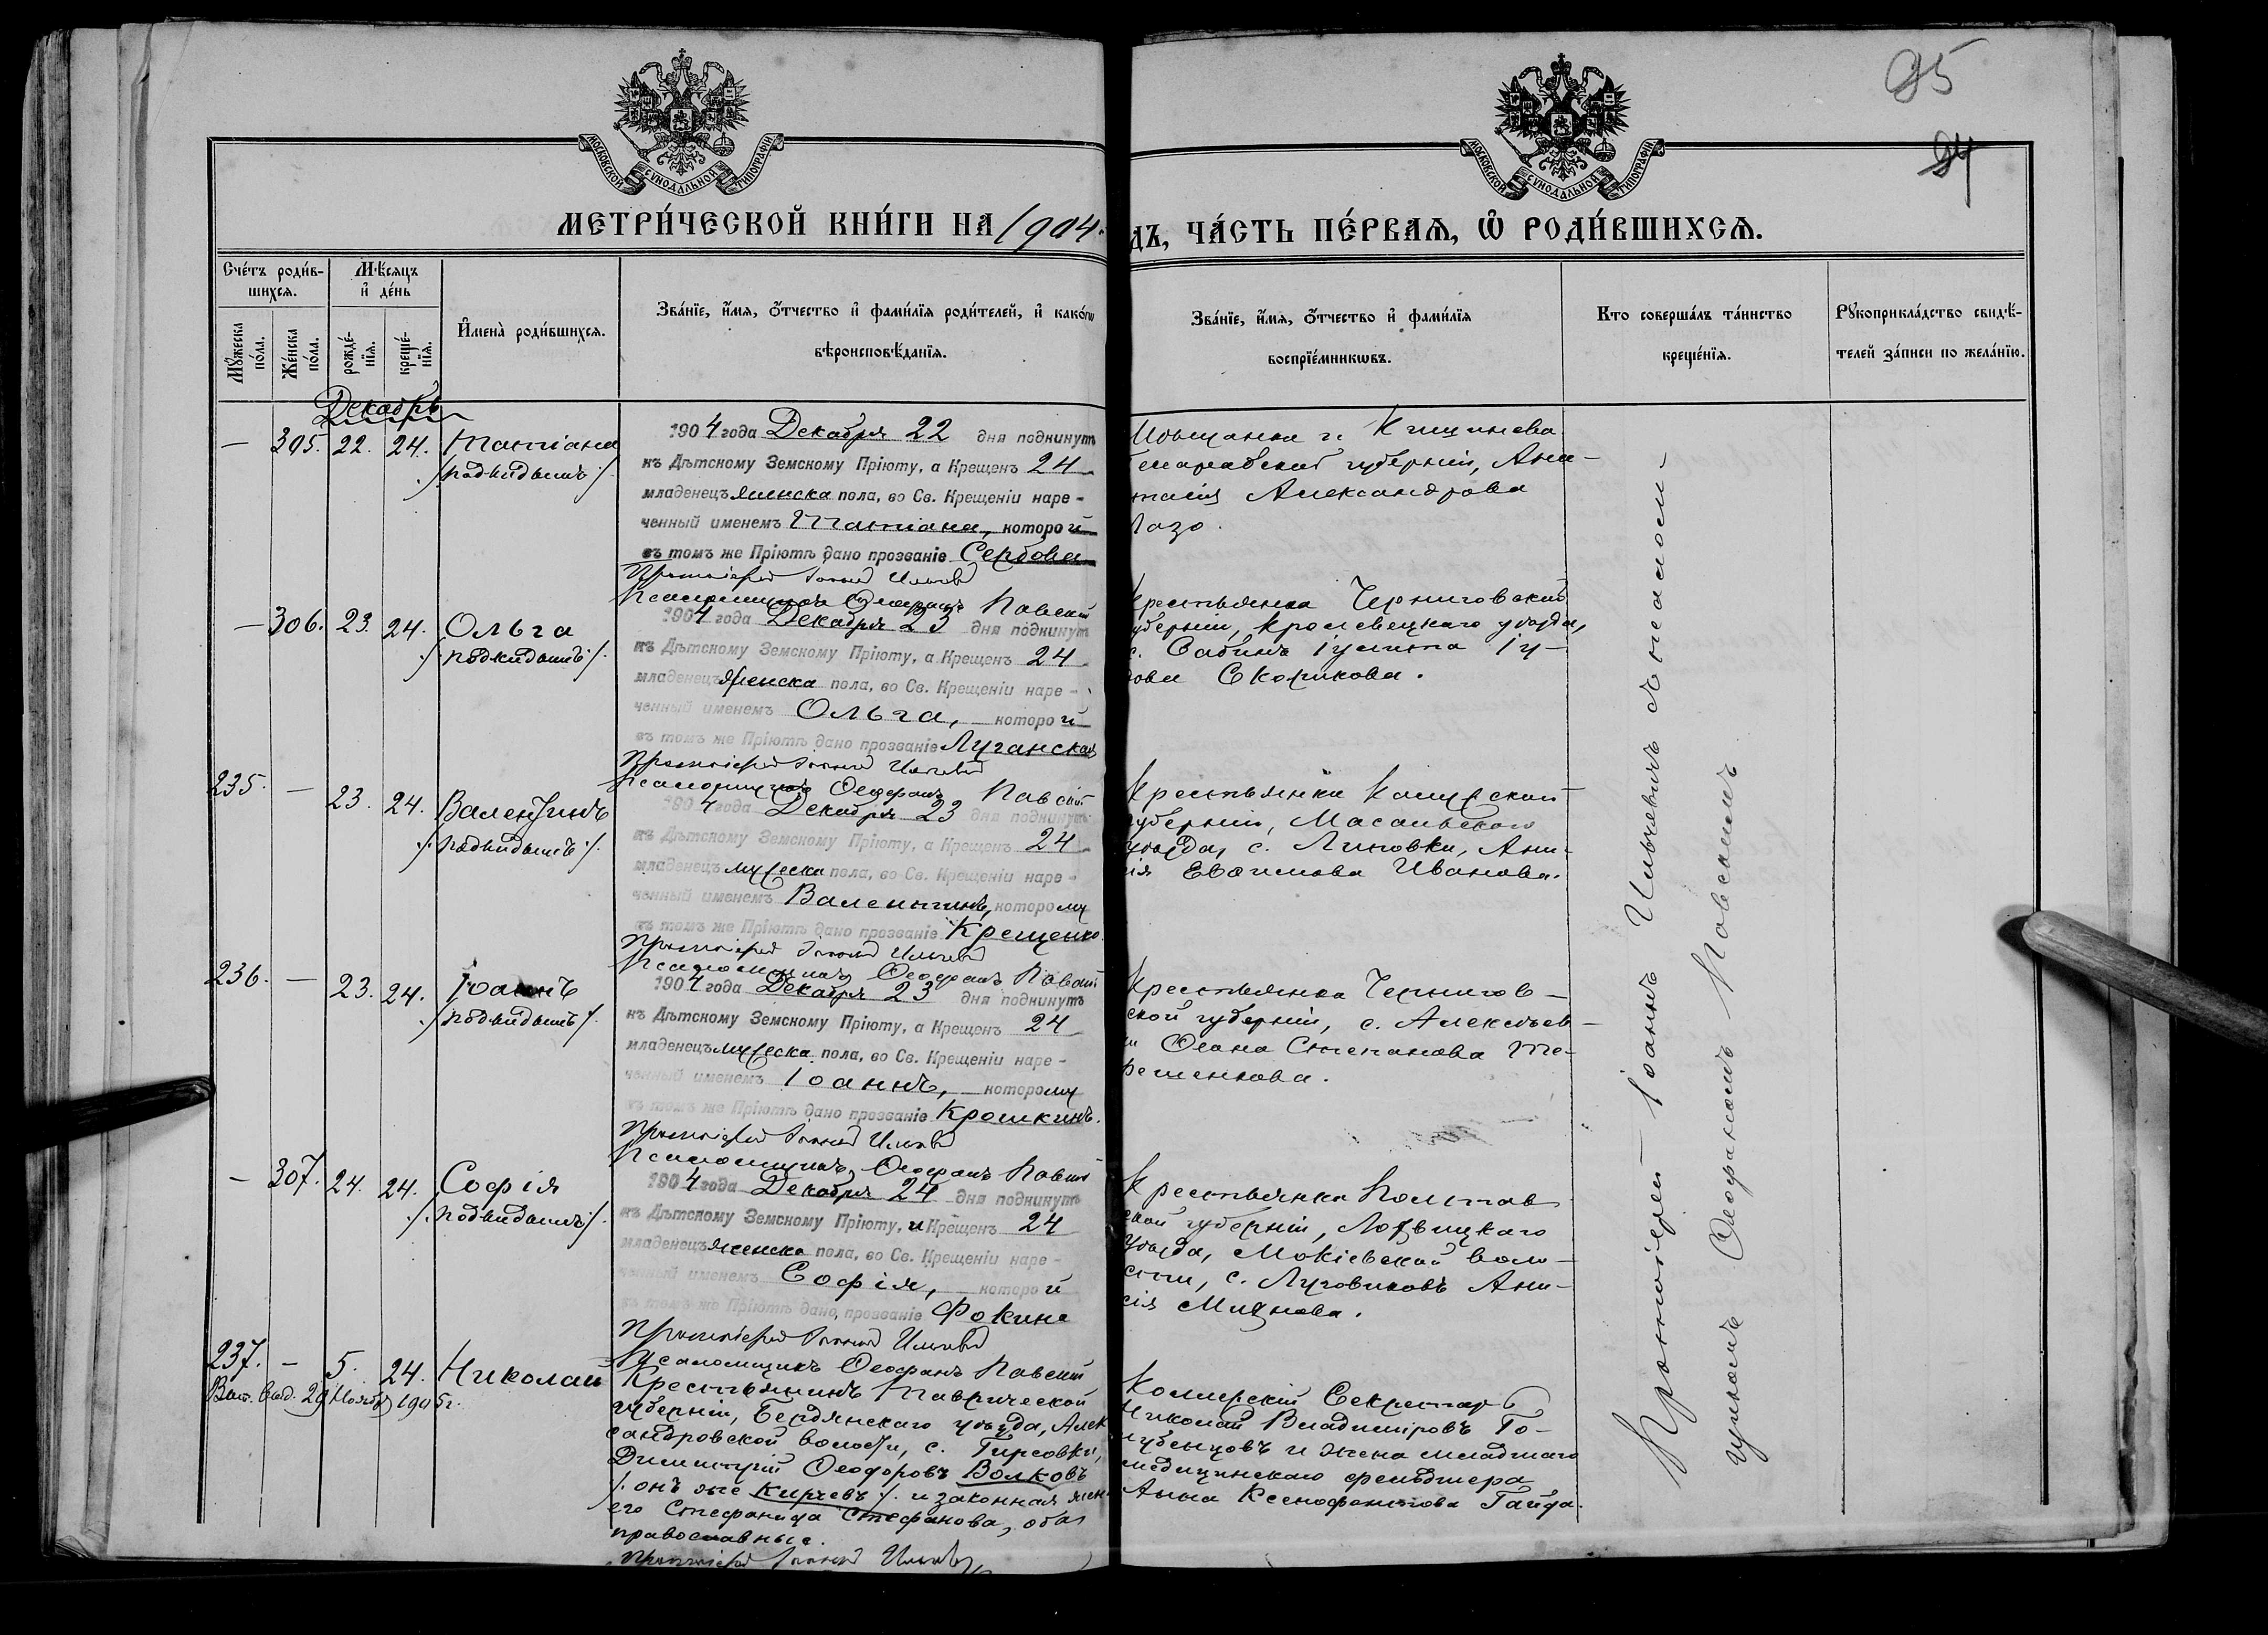 95
94
МОСКОВСКОЙ СѴНОДАЛЬНОЙ ТИПОГРАФІИ
МОСКОВСКОЙ СѴНОДАЛЬНОЙ ТИПОГРАФІИ
МЕТРИ́ЧЕСКОЙ КНИ́ГИ НА 1904
ДЪ, ЧА́СТЬ ПЕ́РВАѦ, Ѽ РОДИ́ВШИХСѦ.
Сче́тъ роди́в-
шихсѧ.
Мѣ́сѧцъ
и҆ де́нь
Мꙋ́жеска
по́ла.
Же́нска
по́ла.
рожде́-
нїѧ.
креще́-
нїѧ.
И҆мена̀ роди́вшихсѧ.
Зва́нїе, и҆́мѧ, ѻ҆́тчество и҆ фами́лїѧ роди́телей, и҆ како́гѡ
вѣроисповѣ́данїѧ.
Зва́нїе, и҆́мѧ, ѻ҆́тчество и҆ фами́лїѧ
воспрїе́мникѡвъ.
Кто соверша́лъ та́инство
креще́нїѧ.
Рꙋкоприкла́дство свидѣ́-
телей за́писи по жела́нїю.
Декабрь
— 305. 22. 24. Татіана
/. подкидышъ ./
1904 года Декабря 22 дня подкинутъ
къ Дѣтскому Земскому Пріюту, а Крещенъ 24
младенецъ женска пола, во Св. Крещеніи наре-
ченный именемъ Татіана, которой
въ томъ же Пріютѣ дано прозваніе Сербова
Протоіерей Іоаннъ
Псаломщикъ Ѳеофанъ Павскій
Мѣщанка г. Кишинева
Бессарабской губерніи, Ана-
тасія Александрова
Лазо.
— 306. 23. 24. Ольга
/. подкидышъ ./
1904 года Декабря 23 дня подкинутъ
къ Дѣтскому Земскому Пріюту, а Крещенъ 24
младенецъ женска пола, во Св. Крещеніи наре-
ченный именемъ Ольга, — которой
въ томъ же Пріютѣ дано прозваніе Луганская
Протоіерей Іоаннъ
Псаломщикъ Ѳеофанъ Павскій
Крестьянка Черниговской
губерніи, Кролевецкаго уѣзда,
Скорикова.
235. — 23. 24. Валентинъ
/. подкидышъ ./
1904 года Декабря 23 дня подкинутъ
къ Дѣтскому Земскому Пріюту, а Крещенъ 24
младенецъ мужеска пола, во Св. Крещеніи наре-
ченный именемъ Валентинъ, которому
въ томъ же Пріютѣ дано прозваніе Крещенко.
Протоіерей Іоаннъ
Псаломщикъ Ѳеофанъ Павскій
Крестьянка Калужской
губерніи, Масальскаго
уѣзда, с. Липовки, Ани-
сія Евѳимова Иванова.
236. — 23. 24. Іоаннъ
/. подкидышъ ./
1904 года Декабря 23 дня подкинутъ
къ Дѣтскому Земскому Пріюту, а Крещенъ 24
младенецъ мужеска пола, во Св. Крещеніи наре-
ченный именемъ Іоаннъ, — которому
въ томъ же Пріютѣ дано прозваніе Крошкинъ.
Протоіерей Іоаннъ
Псаломщикъ Ѳеофанъ Павскій
Крестьянка Чернигов-
ской губерніи, с. Алексѣев-
Степанова Те-
решенкова.
— 307. 24. 24. Софія
/. подкидышъ ./
1904 года Декабря 24 дня подкинутъ
къ Дѣтскому Земскому Пріюту, и Крещенъ 24
младенецъ женска пола, во Св. Крещеніи наре-
ченный именемъ Софія, — которой
въ томъ же Пріютѣ дано прозваніе Фокина
Протоіерей Іоаннъ
Псаломщикъ Ѳеофанъ Павскій
Крестьянка Полтав
ской губерніи, Лохвицкаго
уѣзда, Мокіевской воло-
сти, с. Луговиковъ Ани-
сія
237. — 5. 24. Николай
выд. 29 Ноября 1905 г.
Крестьянинъ Таврической
губерніи, Бердянскаго уѣзда, Алек
сандровской волости, с. Гирсовки,
Димитрій Ѳеодоровъ Волковъ
/. онъ же Кирчевъ ./. и законная жен
его Стефанида Стефанова, оба
православные.
Протоіерей Іоаннъ
Коллежскій Секретарь
Николай Владиміровъ Го-
лубенцовъ и жена младшаго
медицинскаго фельдшера
Анна Ксенофонтова Гайда.
Протоіерей Іоаннъ съ псалом-
щикомъ Ѳеофаномъ Павскимъ